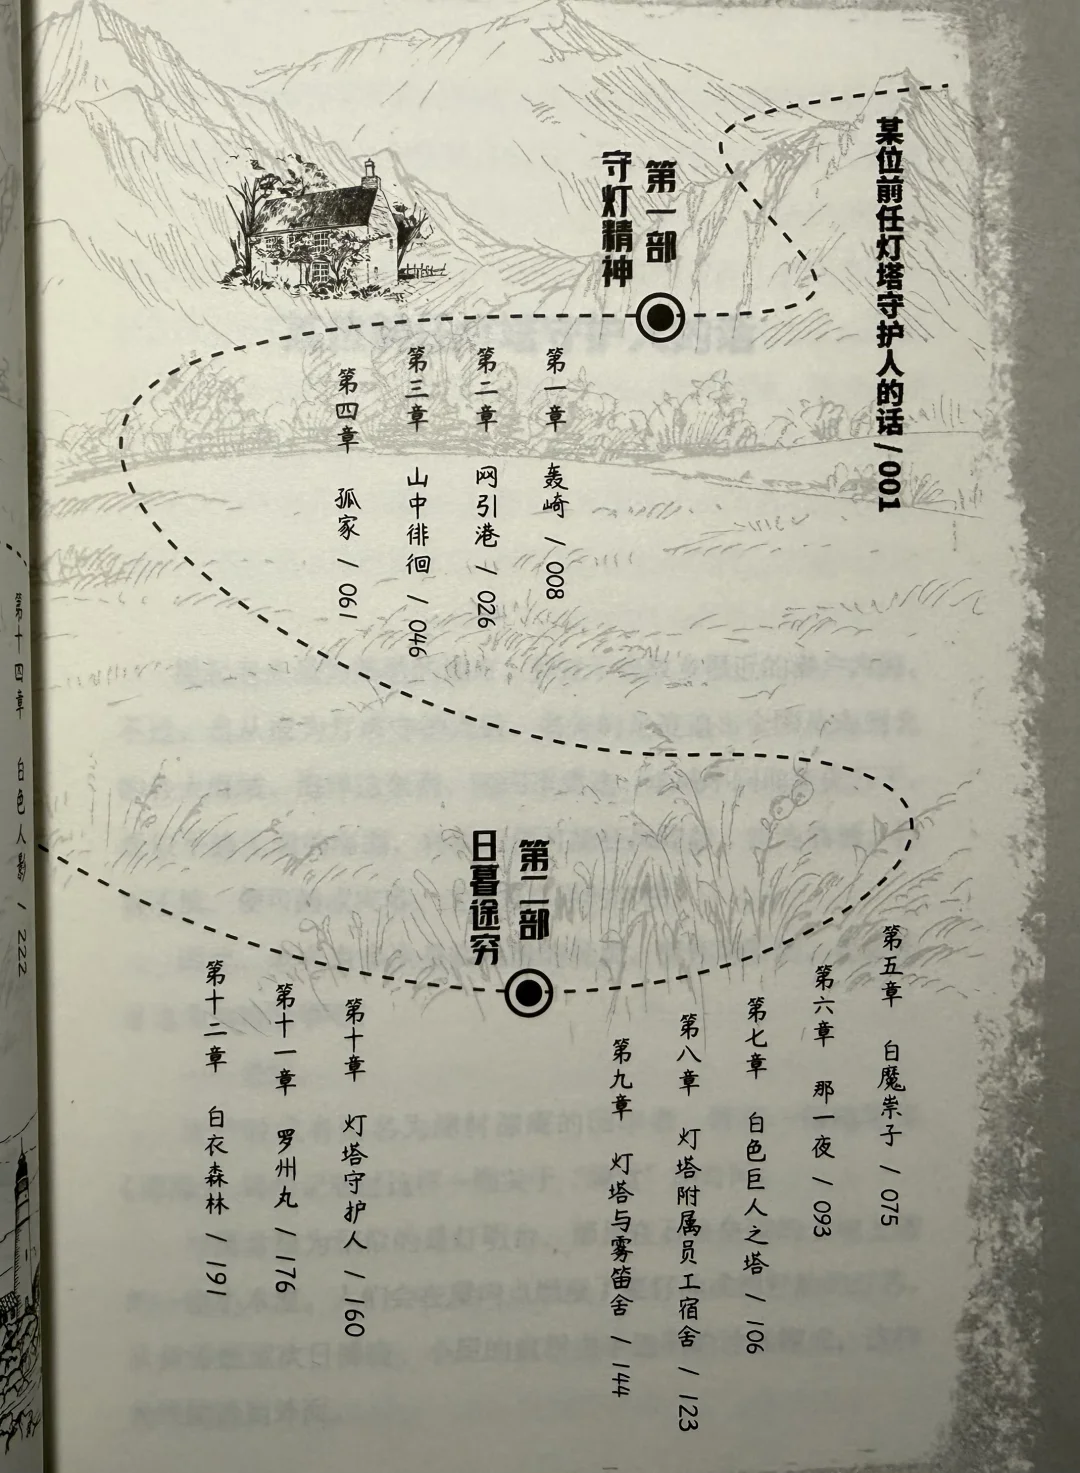 某位前任灯塔守护人的话/001
第一部
守灯精神
第一章 轰崎 / 008
第二章 网引港 / 026
第三章 山中徘徊 / 046
第四章 孤家 / 061
第二部
日暮途穷
第五章 白魔祟子 / 075
第六章 那一夜 / 093
第七章 白色巨人之塔 / 106
第八章 灯塔附属员工宿舍 / 123
第九章 灯塔与雾笛舍 / 144
第十章 灯塔守护人 / 160
第十一章 罗州丸 / 176
第十二章 白衣森林 / 191
第十四章 白色人影 / 222